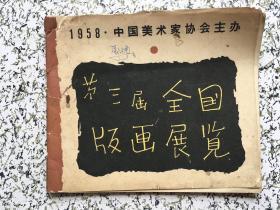 1958·中国美术家协会主办
第三届全国
版画展览